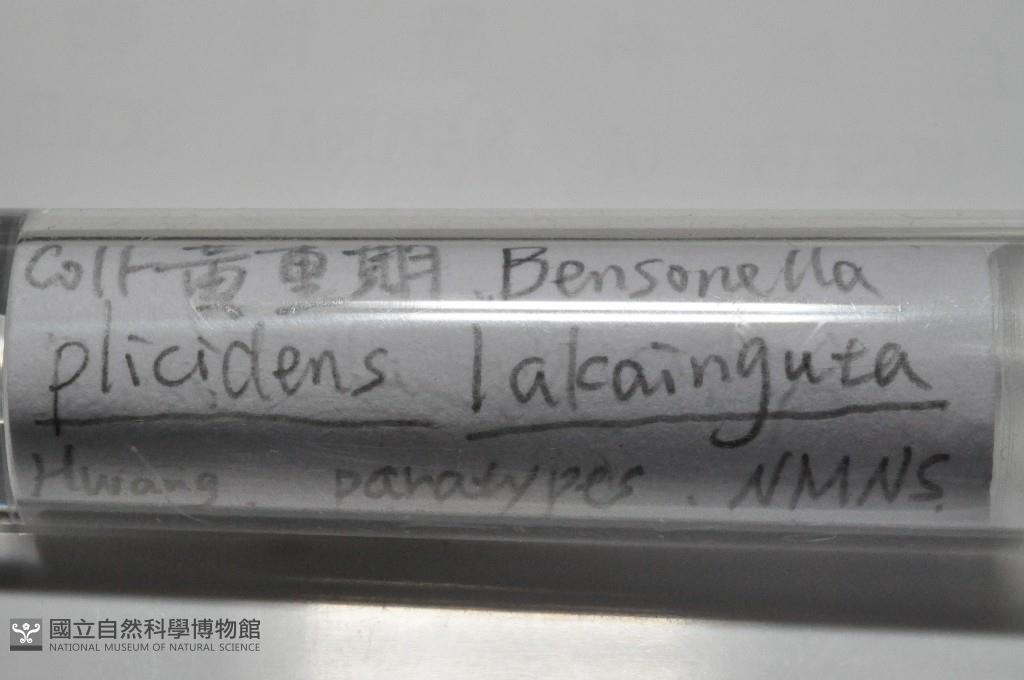 Coll 黃重期 Bensonella
plicidens lakainguta
Hwang. paratypes. NMNS.
國立自然科學博物館
NATIONAL MUSEUM OF NATURAL SCIENCE